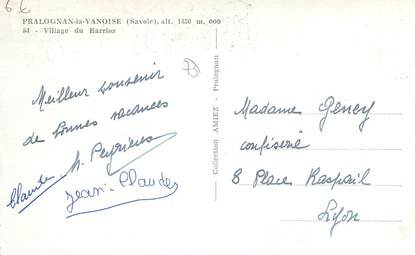 6 €
PRALOGNAN-la-VANOISE (Savoie), alt. 1450 m. 000
84 - Village du Barrioz
Meilleur souvenir
de bonnes vacances
Claudie N. Peyrières
Jean-Claude
Collection AMIEZ - Pralognan
Madame Geney
confiserie
8 Place Raspail
Lyon